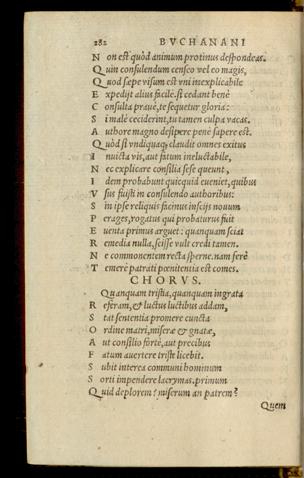 282 BVCHANANI
Non est quòd animum protinus despondeas.
Quin consulendum censeo vel eo magis,
Quod sæpe visum est vni inexplicabile
Expedijt alius facilè. si cedant benè
Consulta prauè, te sequetur gloria:
Si malè ceciderint, tu tamen culpa vacas.
Authore magno desipere penè sapere est.
Quòd si vndiquaq; claudit omnes exitus
Inuicta vis, aut fatum ineluctabile,
Nec explicare consilia sese queunt,
Idem probabunt quicquid eueniet, quibus
Vsus fuisti in consulendo authoribus:
Sin ipse reliquis facinus inscijs nouum
Perages, rogatus qui probaturus fuit
Euenta primus arguet: quanquam sciat
Remedia nulla, scisse vult credi tamen.
Ne commonentem recta sperne. nam ferè
Temerè patrati pœnitentia est comes.
CHORVS.
Quanquam tristia, quanquam ingrata
Referam, & luctus luctibus addam,
Stat sententia promere cuncta
Ordine matri, miseræ & gnatæ,
Aut consilio fortè, aut precibus
Fatum auertere triste licebit.
Subit interea communi hominum
Sorti impendere lacrymas. primum
Quid deplorem? miserum an patrem?
Quem